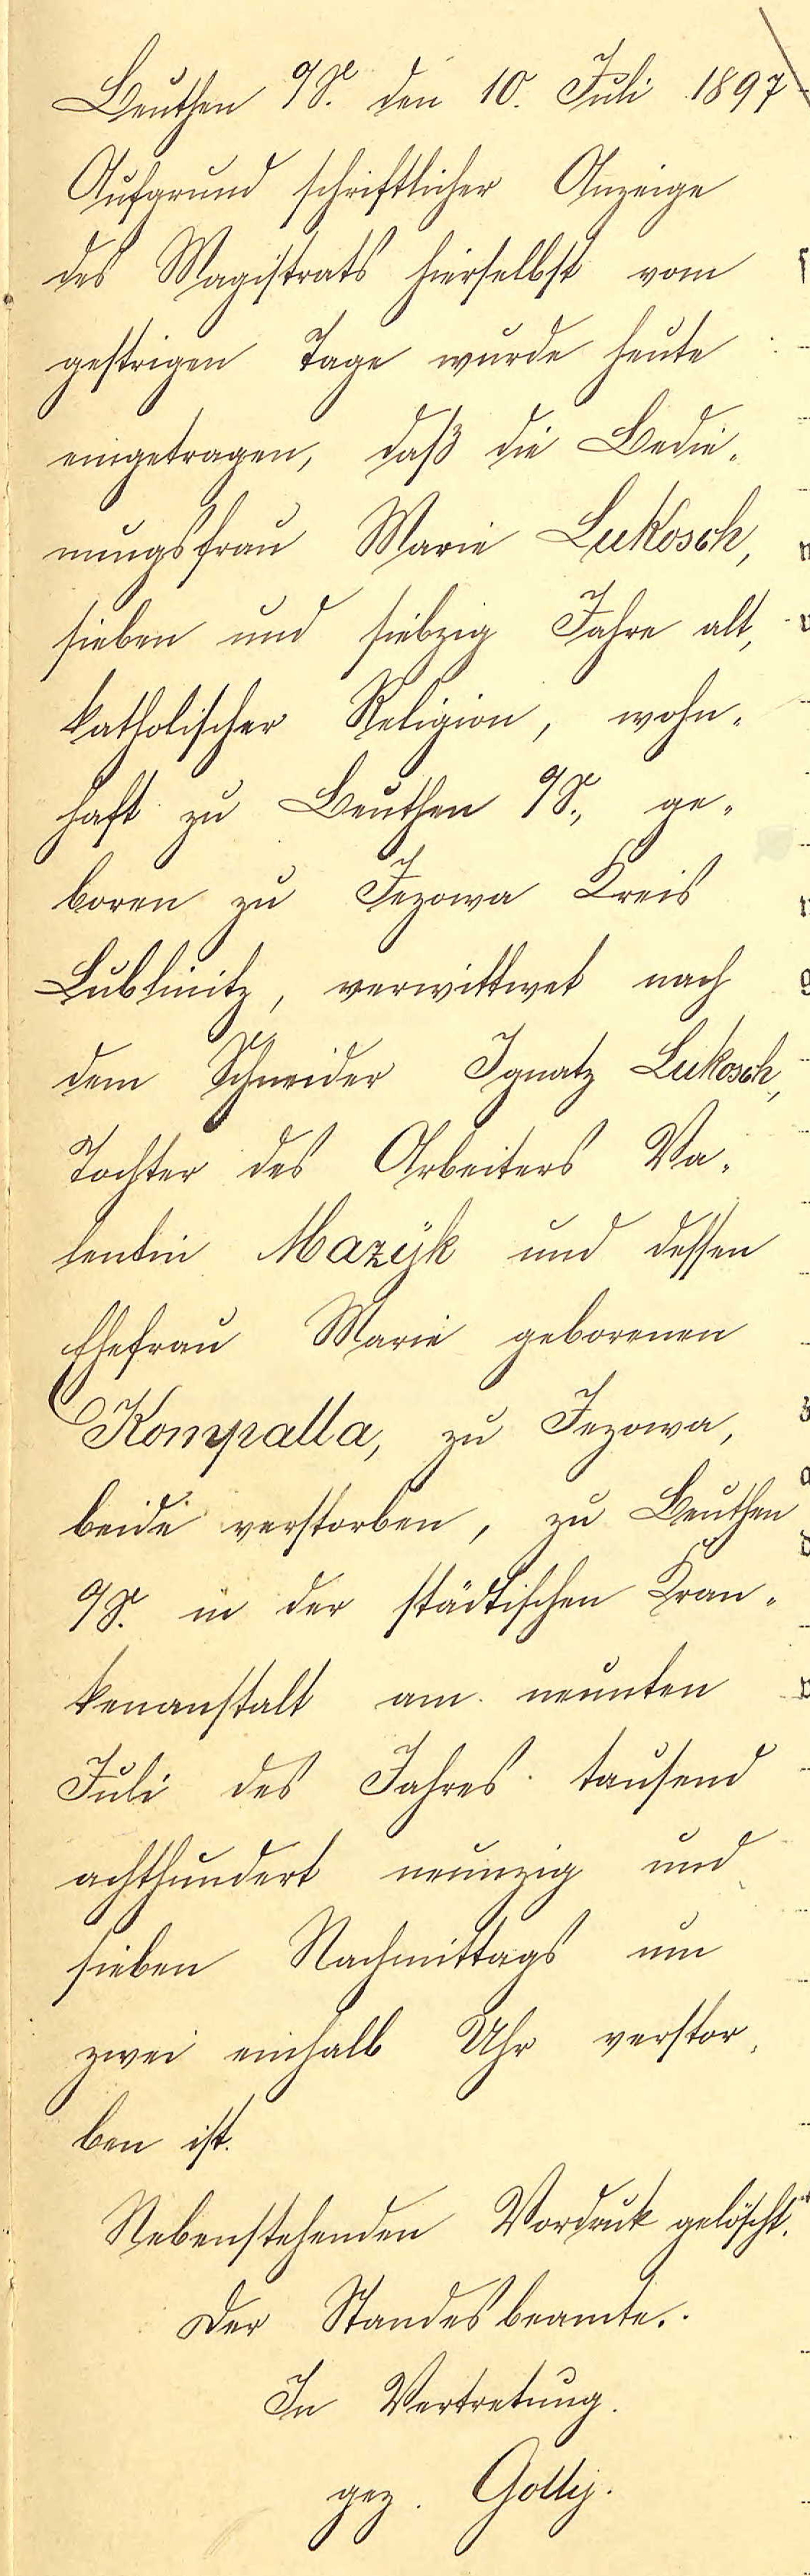 Beuthen O/S. den 10. Juli 1897
Aufgrund schriftlicher Anzeige
des Magistrats hierselbst vom
gestrigen Tage wurde heute
eingetragen, daß die Bedie-
nungsfrau Marie Lukosch,
sieben und siebzig Jahre alt,
katholischer Religion, wohn-
haft zu Beuthen O/S., ge-
boren zu Jezowa Kreis
Lublinitz, verwittwet nach
dem Schneider Ignatz Lukosch,
Tochter des Arbeiters Va-
lentin Mazÿk und dessen
Ehefrau Marie geborenen
Kompalla, zu Jezowa,
beide verstorben, zu Beuthen
O/S. in der städtischen Kran-
kenanstalt am neunten
Juli des Jahres tausend
achthundert neunzig und
sieben Nachmittags um
zwei einhalb Uhr verstor-
ben ist.
Nebenstehenden Vordruk gelöscht.
Der Standesbeamte.
In Vertretung.
gez. Golly.